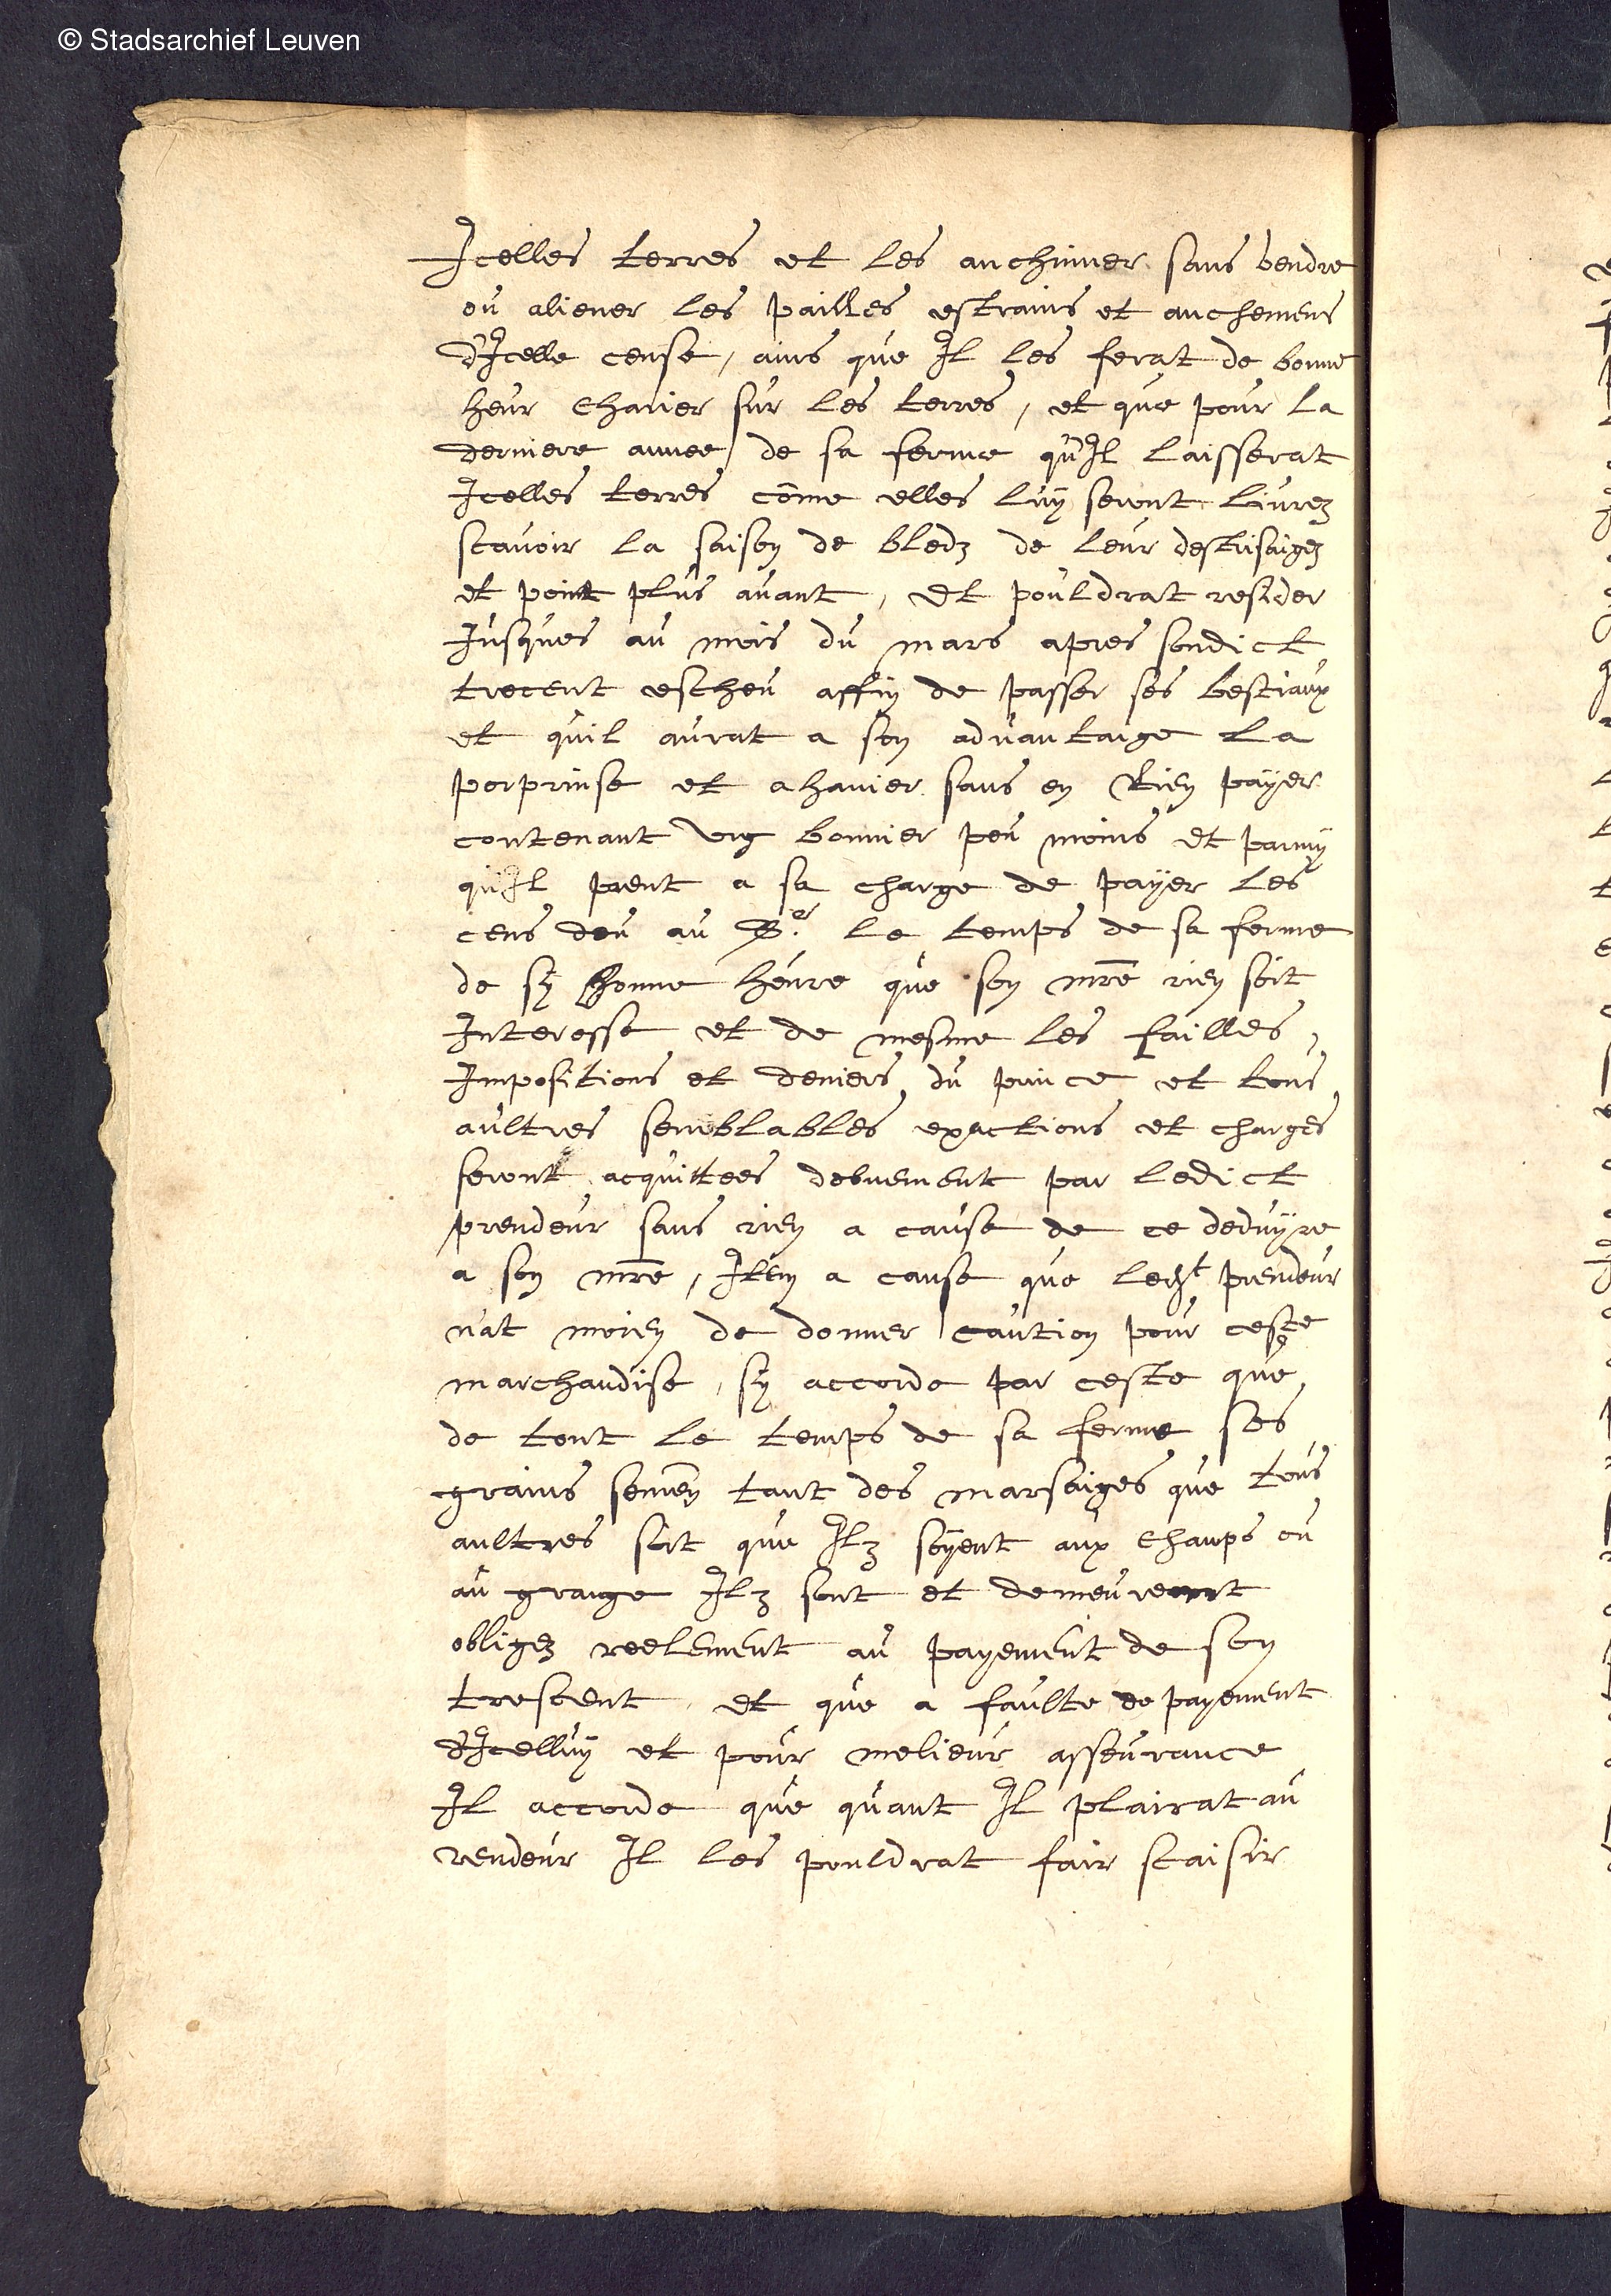 © Stadsarchief Leuven
Icelles terres et les anchinner sans vendre
ou aliener les pailles estrains et anchemens
d'Icelle cense, ains que Il les ferat de bonne
heur charier sur les terres, et que pour la
derniere annee de sa ferme qu'Il laisserat
Icelles terres come elles luy seront livrez
scavoir la saison de bledz de leur
et point plus avant, Et pouldrat resider
Jusques au mois du mars apres sondict
trecent escheu affin de passer ses bestiaux
et quil aurat a son advantaige la
porprinse et ahanier sans en Rien payer
contenant ung bonnier peu moins et parmy
qu'Il prent a sa charge de payer les
cens deu au Sr. le temps de sa ferme
de sy bonne heure que son mre rien soit
Interesse et de mesme les tailles,
Impositions et deniers du prince et tous
aultres semblables exactions et charges
seront acquittees debuement par ledict
prendeur sans rien a cause de ce deduyre
a son mre, Item a cause que ledt prendeur
n'at moien de donner caution pour ceste
marchandise, sy accorde par ceste que
de tout le temps de sa ferme ses
grains tant des marsaiges que tous
aultres soit que Ilz soyent aux champs ou
au grange Ilz sont et demeureront
obligez reelement au payement de son
trescent et que a faulte de payement
d'Icelluy et pour melieur asseurance
Il accorde que quant Il plairat au
rendeur Il les pouldrat fair scaisir